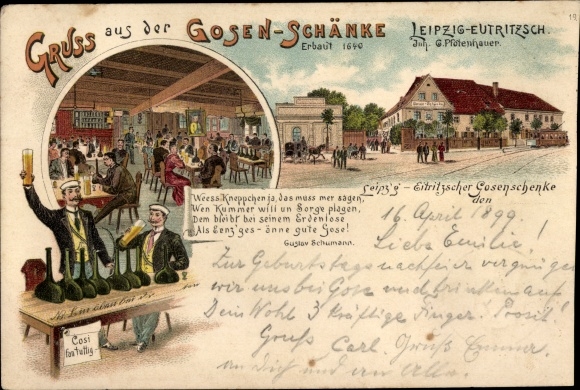 Gruss aus der Gosen-Schänke
Erbaut 1640
Leipzig-Eutritzsch.
Joh. G. Pfotenhauer.
Weess Kneppchen ja, das muss mer sagen,
Wen Kummer will un Sorge plagen,
Dem bleibt bei seinem Erdenlose
Als Eenz'ges - änne gute Gose!
Gustav Schumann.
Leipz'g - Eitritzscher Gosenschenke
den
16. April 1899.
Liebe Emilie!
Zur Geburtstagsnachfeier vergnügen
wir uns bei Gose und trinken auf
Dein Wohl 3 kräftige Finger. Prosit!
Gruß Carl. Gruß
an Dich und an Alle.
Cosi
fan tuttig.